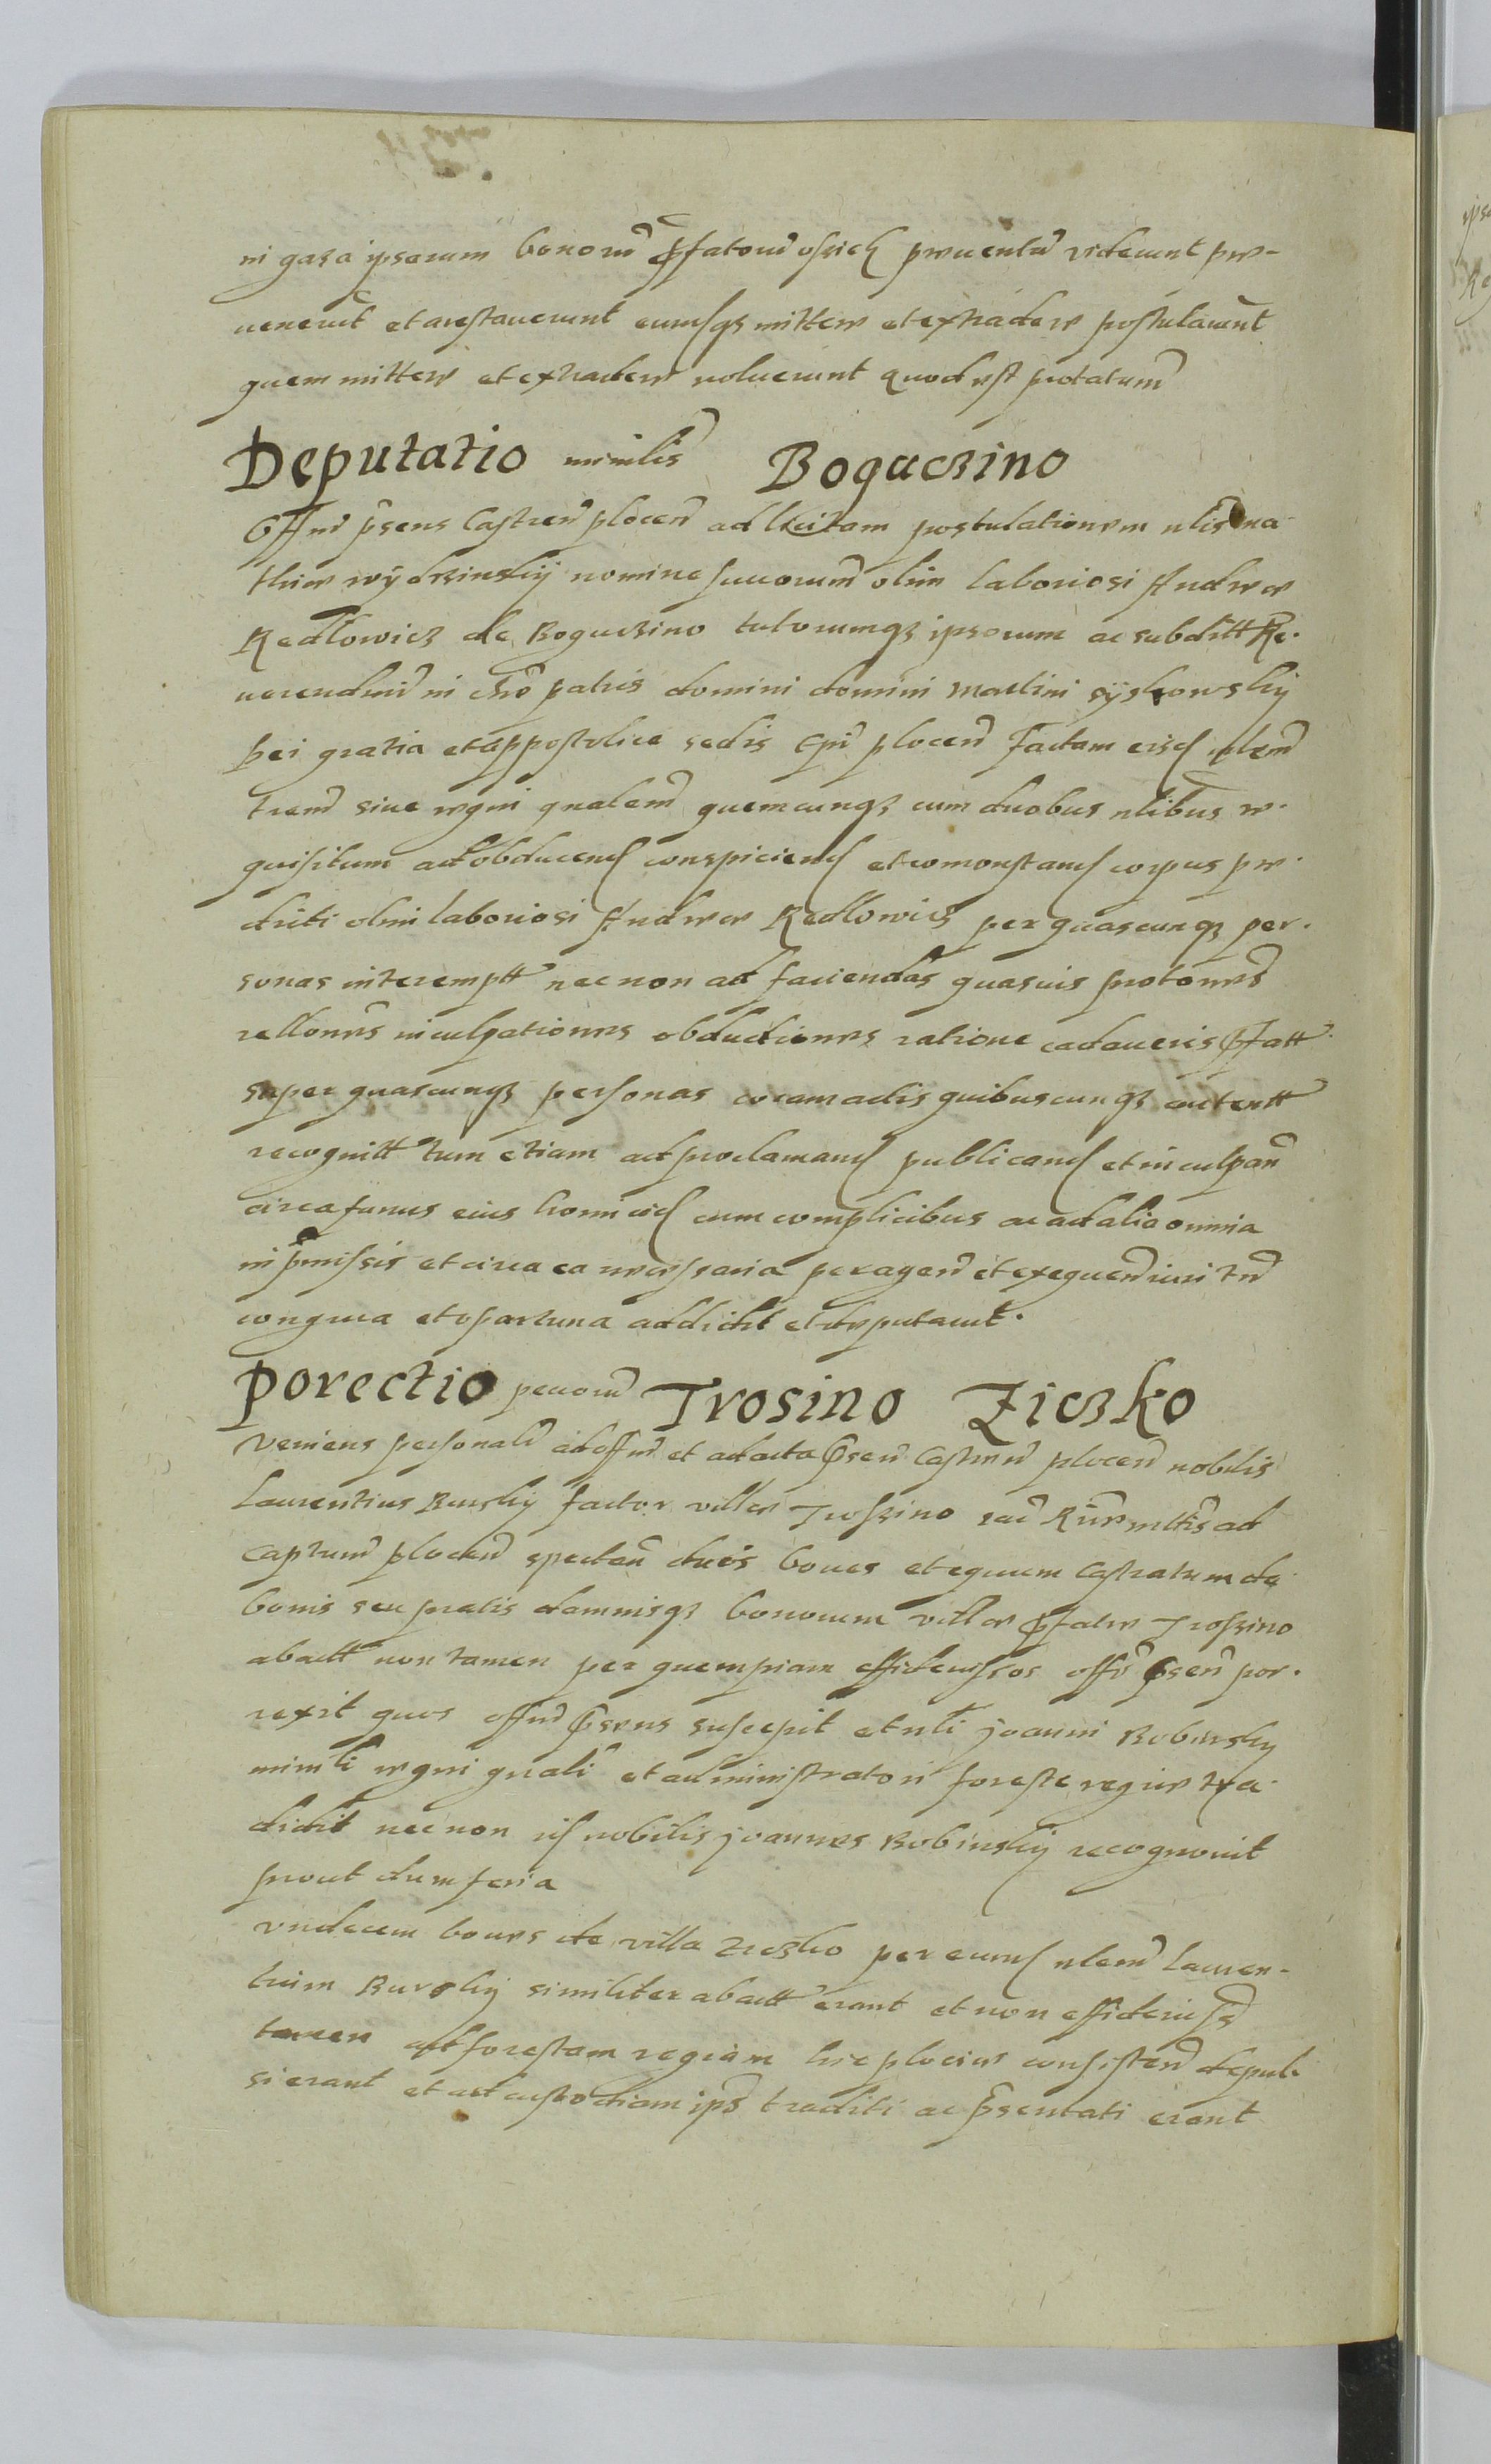 in gaza ipsarum bonorũ p̃fatorũ ossied prouentũ viderunt pre-
uenerũt et arestauerunt eumsqȝ mittere et extradere postularũt
quem mittere et extradere noluerunt quod est protatum̃
Deputatio minilis̃ Boguczino
Offm̃ p̃sens Castren̄ plocen̄ ad licitam postulationem nlis̃ Ma
thiae wydzinskij nomine suuorum̃ olim laboriosi Andreae
Redlowicz de Boguczino tutorumqȝ ipsorum ac subditt Re.
uerendiss̃ in chr̃o patris domini domini Martini syskowskij
Dei gratia et appostolice sedis Epĩ plocen̄ factam eisd nlem̃
trem̃ siue regni gnalem̃ quemcunqȝ cum duobus nlibus re.
quisitum ad obducend conspiciend et comonstand corpus pre.
dicti olim laboriosi Andreae Redlowicz per quascunqȝ per.
sonas interemptt necnon ad faciendas quasuis protones̃
rellones̃ inculpationes obductiones ratione cadaueris p̃fatt
super quascunqȝ personas coram actis quibuscunqȝ autentt
recognitt tum etiam ad proclamand publicand et inculpan̄
circa funus eius homicid cum complicibus ac ad alia omnia
in p̃missis et circa ea necessaria peragen̄ et exequen̄ iuri tn̄
congrua et oportuna addidit et deputauit.
Porectio pecorũ Trosino Ziczko
Veniens personalr̃ ad offm̃ et ad acta p̃sen̄ Castren̄ plocen̄ nobilis
Laurentius Burskij factor villae Troszino rad̃ Rũre mltis̃ ad
Captum̃ plocen̄ spectan̄ duos boues et equum Castratum de
bonis seu pratis damnisqȝ bonorum villae p̃fatae Troszino
abactt non tamen per quempiam effideiussos offõ p̃sen̄ por.
rexit quos offm̃ p̃sens suscepit et nlĩ Joanni Bobinskij
minlĩ regni gnalĩ et administratori foreste regiae tra.
didit necnon id nobilis Joannes Bobinskij recognouit
prout dum feria
Vndecem boues de villa Ziczko per eumd nlem̃ Lauren-
tium Burskij similiter abactt erant et non effideiussi
tamen ad forestam regiam hic plociae consisten̄ depul.
si erant et ad custodiam ips̃ traditi ac p̃sentati erant